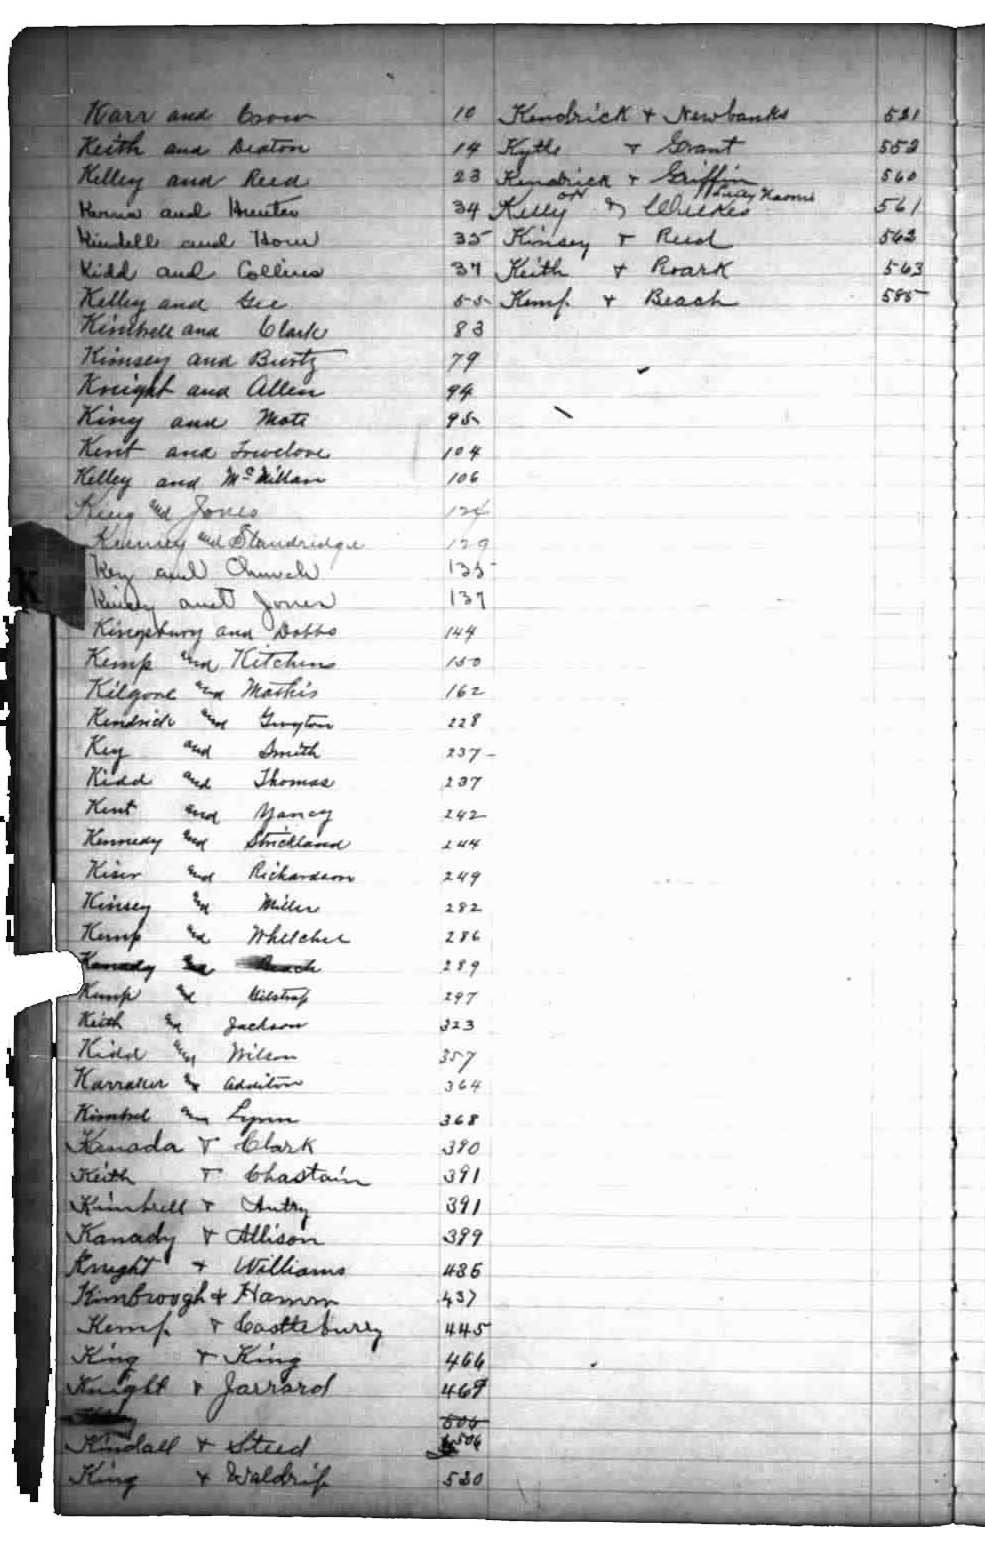 Karr and Crow 10
Keith and Deaton 14
Kelley and Reed 23
and Hunter 34
and 35
Kidd and Collins 37
Kelley and Gee 55
Kimbell and Clark 83
Kimsey and Burtz 79
Knight and Allen 94
King and Mote 95
Kent and Truelove 104
Kelley and McMillan 106
King and Jones 124
and Standridge 129
Key and Church 135
and Jones 137
Kingsbury and Dobbs 144
Kemp and Kitchens 150
Kilgore and Mathis 162
Kendrick and Guyton 228
Key and Smith 237
Kidd and Thomas 237
Kent and Yancy 242
Kennedy and Strickland 244
Kiser and Richardson 249
Kinsey and Miller 282
Kemp and Whelchel 286
Kanady and Beach 289
Kemp and 297
Keith and Jackson 323
Kidd and Wilson 357
Karraker and Additon 364
Kimbrel and Lynn 368
Kanada & Clark 380
Keith & Chastain 391
Kimbrell & Autry 391
Kanady & Allison 399
Knight & Williams 435
Kimbrough & Hamm 437
Kemp & Castleburry 445
King & King 466
Knight & Jarrard 469
506
Kindall & Steed 506
King & Waldrip 530
Kendrick & Newbanks 521
Kytle & Grant 552
Kendrick & Griffin 560
Kelly & Wilkes Lucy Naomi 561
Kinsey & Reed 562
Keith & Roark 563
Kemp & Beach 585
K